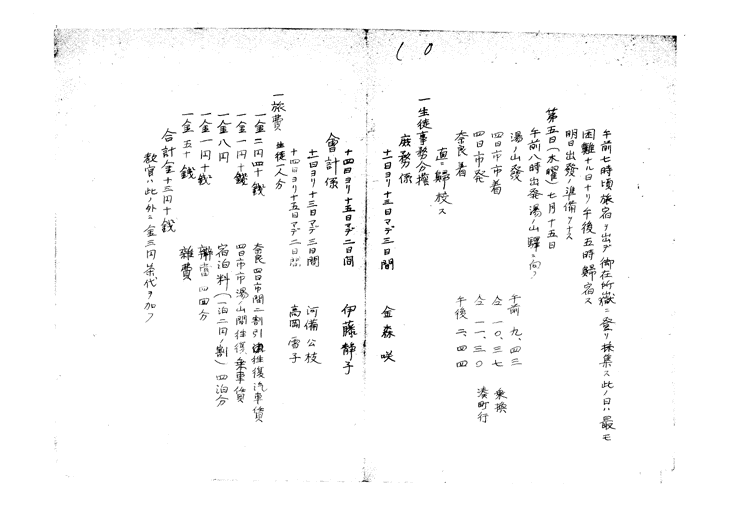 10
午前七時頃旅宿ヲ出デ御在所嶽ニ登リ採集ス此ノ日ハ最モ
困難ナル日ナリ午後五時歸宿ス
明日出發ノ準備ヲナス
第五日(水曜)七月十五日
午前八時出発湯ノ山驛ニ向フ
湯ノ山發 午前 九、四三
四日市着 仝 一〇、三七 乗換
四日市発 仝 一一、三〇 湊町行
奈良着 午後 二、四四
直ニ歸校ス
一生徒事務分擔
庶務係
十一日ヨリ十三日マデ三日間 金森咲
十四日ヨリ十五日マデ二日間 伊藤靜子
會計係
十一日ヨリ十三日マデ三日間 河備公枝
十四日ヨリ十五日マデ二日間 高岡雪子
一旅費 生徒一人分
一金二円四十銭 奈良四日市間二割引往復汽車賃
一金一円十銭 四日市湯ノ山間往復乗車賃
一金八円 宿泊料(一泊二円ノ割)四泊分
一金一円十銭 辨當 四回分
一金五十銭 雜費
合計金十三円十銭
教官ハ此ノ外ニ金三円茶代ヲ加フ